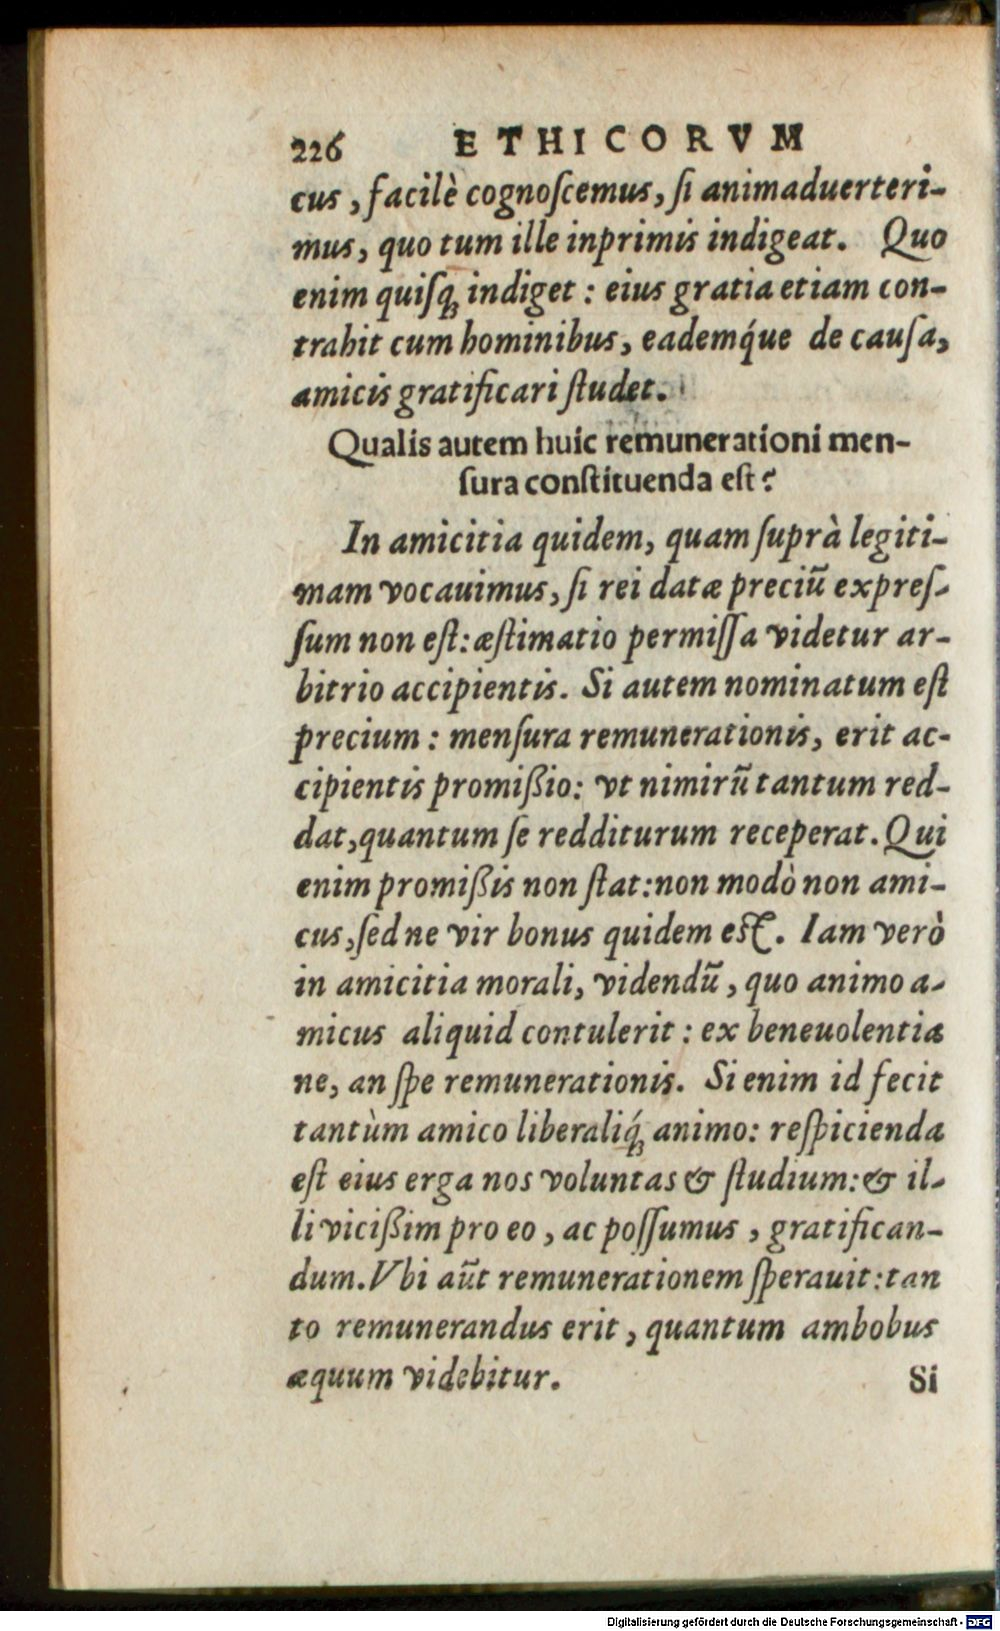 226 ETHICORVM
cus, facilè cognoſcemus, ſi animaduerteri-
mus, quo tum ille inprimis indigeat. Quo
enim quiſq; indiget : eius gratia etiam con-
trahit cum hominibus, eademq́ue de cauſa,
amicis gratificari ſtudet.
Qualis autem huic remunerationi men-
ſura conſtituenda eſt?
In amicitia quidem, quam ſuprà legiti-
mam vocauimus, ſi rei datæ preciū expreſ-
ſum non eſt: æſtimatio permiſſa videtur ar-
bitrio accipientis. Si autem nominatum eſt
precium : menſura remunerationis, erit ac-
cipientis promißio: vt nimirū tantum red-
dat, quantum ſe redditurum receperat. Qui
enim promißis non ſtat: non modò non ami-
cus, ſed ne vir bonus quidem eſt. Iam verò
in amicitia morali, videndū, quo animo a-
micus aliquid contulerit : ex beneuolentia
ne, an ſpe remunerationis. Si enim id fecit
tantùm amico liberaliq́; animo: reſpicienda
eſt eius erga nos voluntas & ſtudium: & il-
li vicißim pro eo, ac poſſumus, gratifican-
dum. Vbi aūt remunerationem ſperauit: tan
to remunerandus erit, quantum ambobus
æquum videbitur. Si
Digitalisierung gefördert durch die Deutsche Forschungsgemeinschaft - DFG